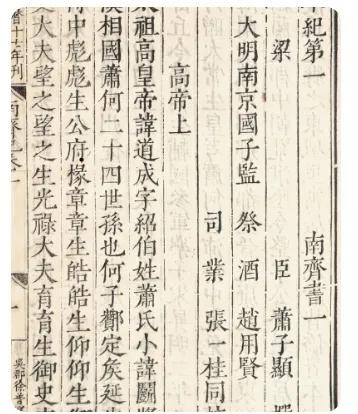 紀第一 南齊書一
梁 臣 蕭子顯
大明南京國子監 祭 酒 趙用賢
司 業 張一桂同
高帝上
祖高皇帝諱道成字紹伯姓蕭氏小諱鬭將
相國蕭何二十四世孫也何子酇定侯延生
中彪彪生公府掾章章生皓皓生仰仰生
大夫望之望之生光祿大夫育育生御史
曆十七年刊 一 吳郡徐普